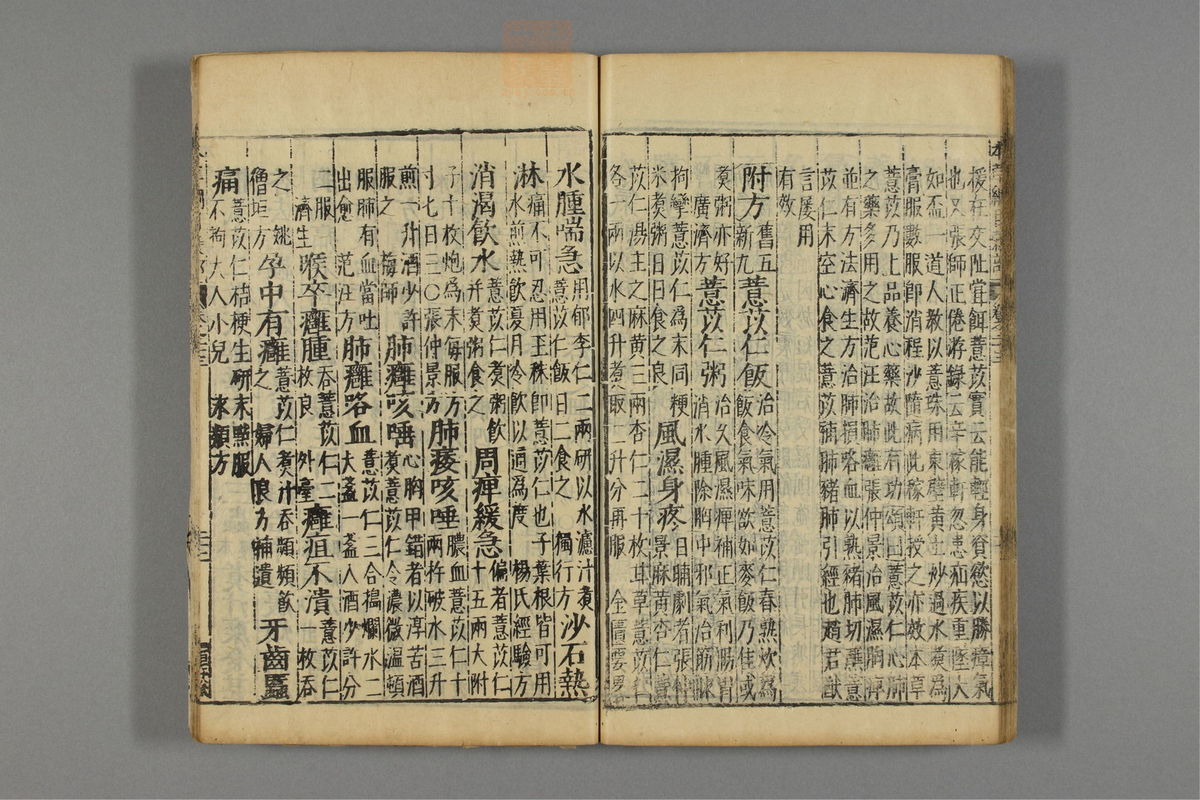 援在交趾嘗餌薏苡實云能輕身資慾以勝瘴氣
也又張師正倦游錄云辛稼軒忽患疝疾重墜大
如盃一道人教以薏珠用東壁黃土炒過水煮為
膏服數服即消程沙隨病此稼軒授之亦效本草
薏苡乃上品養心藥故此有功頌曰薏苡仁心肺
之藥多用之故范汪治肺癰張仲景治風濕胸痹
並有方法濟生方治肺損咯血以熟豬肺切蘸薏
苡仁末空心食之薏苡補肺豬肺引經也趙君猷
言屢用
有效
附方舊五新九薏苡仁飯治冷氣用薏苡仁舂熟炊為飯食氣味欲如麥飯乃佳或
煮粥亦好廣濟方薏苡仁粥治久風濕痹補正氣利腸胃消水腫除胸中邪氣治筋脉
拘攣薏苡仁為末同粳米煮粥日日食之良風濕身疼日晡劇者張仲景麻黃杏仁薏
苡仁湯主之麻黃三兩杏仁二十枚甘草薏苡仁
各一兩以水四升煮取二升分再服 金匱要畧
水腫喘急用郁李仁二兩研以水濾汁煮薏苡仁飯日二食之○獨行方沙石熱
淋痛不可忍用玉秫即薏苡仁也子葉根皆可用水煎熱飲夏月冷飲以通為度 楊氏經驗方
消渴飲水薏苡仁煮粥飲并煮粥食之周痹緩急偏者薏苡仁十五兩大附
子十枚炮為末每服方寸七日三○張仲景方肺痿咳唾膿血薏苡仁十兩杵破水三升
煎一升酒少許服之 梅師肺癰咳唾心胸甲錯者以淳苦酒煮薏苡仁令濃微溫頓
服肺有血當吐出愈 范汪方肺癰咯血薏苡仁三合搗爛水二大盞一盞入酒少許分
二服濟生喉卒癰腫吞薏苡仁二枚良 外臺癰疽不潰薏苡仁一枚吞
之姚僧垣方孕中有癰薏苡仁煮汁頻頻飲之 婦人良方補遺牙齒䘌
痛薏苡仁桔梗生研末㸃服不拘大人小兒 永類方